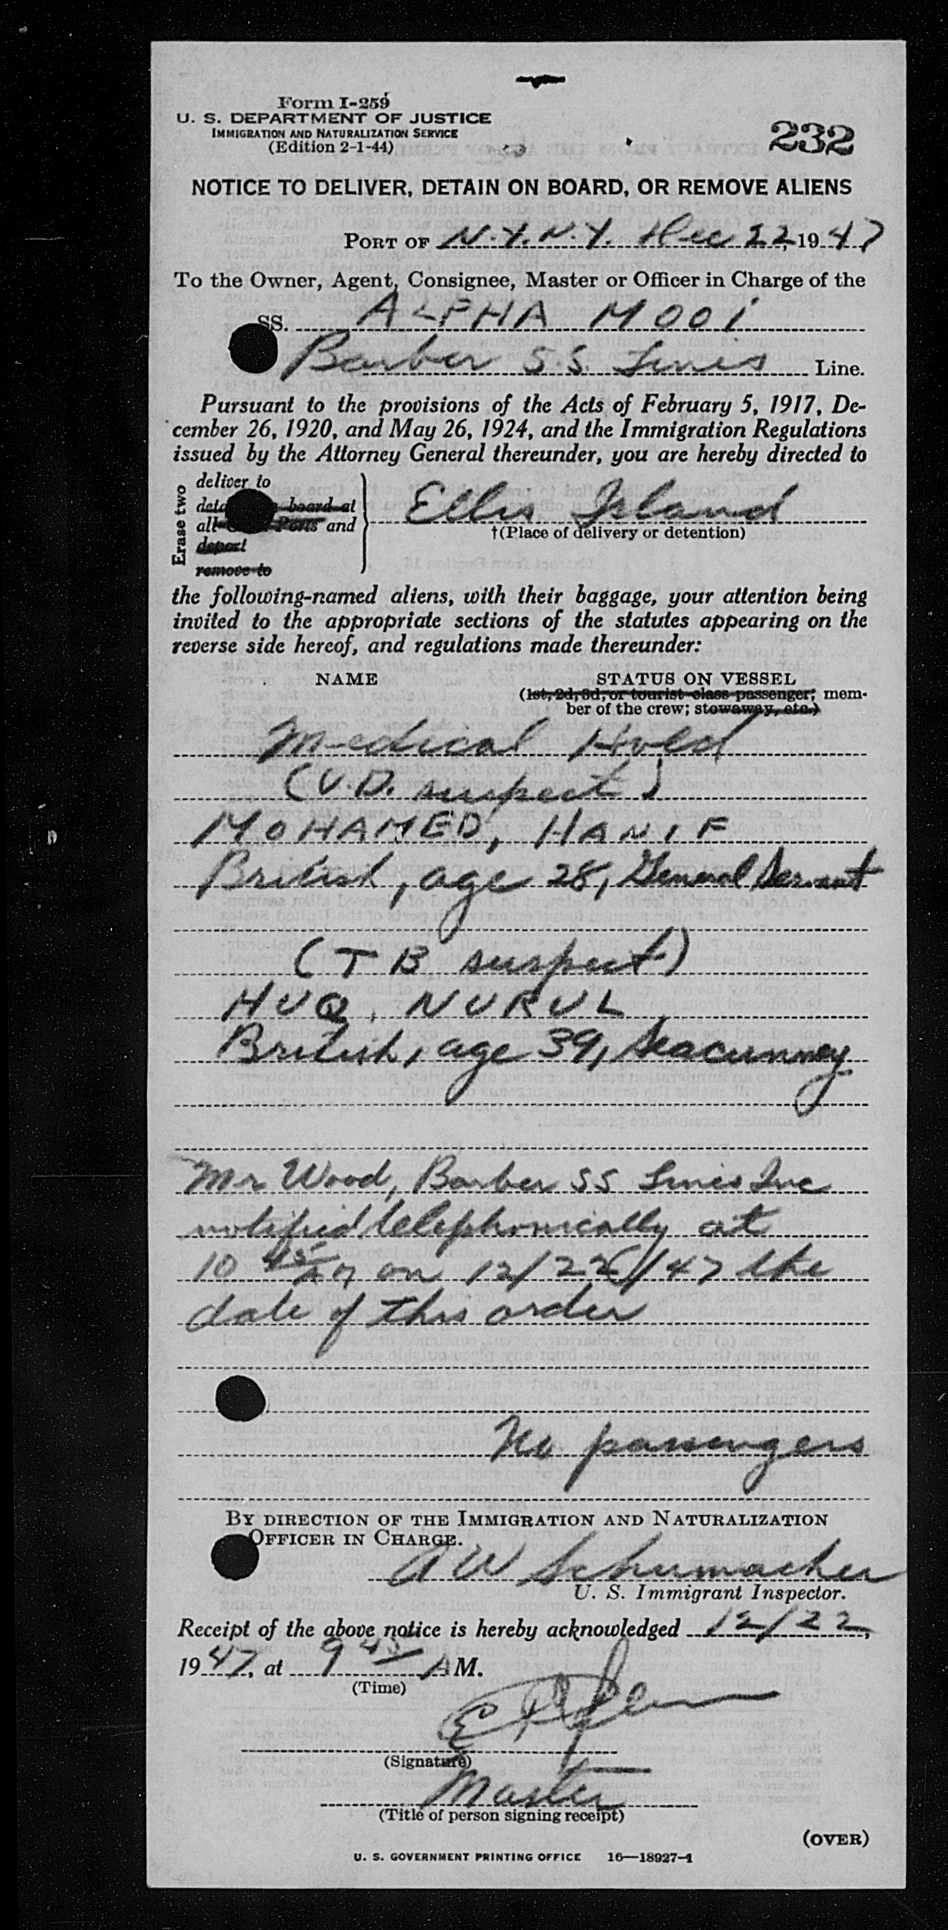 Form I-259
U. S. DEPARTMENT OF JUSTICE
IMMIGRATION AND NATURALIZATION SERVICE
(Edition 2-1-44)
232
NOTICE TO DELIVER, DETAIN ON BOARD, OR REMOVE ALIENS
PORT OF N.Y.N.Y. Dec 22, 1947
To the Owner, Agent, Consignee, Master or Officer in Charge of the
SS. ALPHA MOOI
Barber S.S. Lines Line.
Pursuant to the provisions of the Acts of February 5, 1917, De-
cember 26, 1920, and May 26, 1924, and the Immigration Regulations
issued by the Attorney General thereunder, you are hereby directed to
Erase two
deliver to
board at
all Ports and
deport
remove to
Ellis Island
†(Place of delivery or detention)
the following-named aliens, with their baggage, your attention being
invited to the appropriate sections of the statutes appearing on the
reverse side hereof, and regulations made thereunder:
NAME STATUS ON VESSEL
(1st, 2d, 3d, or tourist class passenger; mem-
ber of the crew; stowaway, etc.)
Medical Hold
(V.D. suspect)
MOHAMED, HANIF
British, age 28, General Servant
(TB suspect)
HUQ, NURUL
British, age 39, Seacunney
Mr Wood, Barber SS Lines Inc
notified telephonically at
10 45 on 12/22/47 the
date of this order
No passengers
BY DIRECTION OF THE IMMIGRATION AND NATURALIZATION
OFFICER IN CHARGE.
A W Schumacher
U. S. Immigrant Inspector.
Receipt of the above notice is hereby acknowledged 12/22,
1947, at 9 45 AM.
(Time)
(Signature)
Master
(Title of person signing receipt)
(OVER)
U. S. GOVERNMENT PRINTING OFFICE 16—18927-1